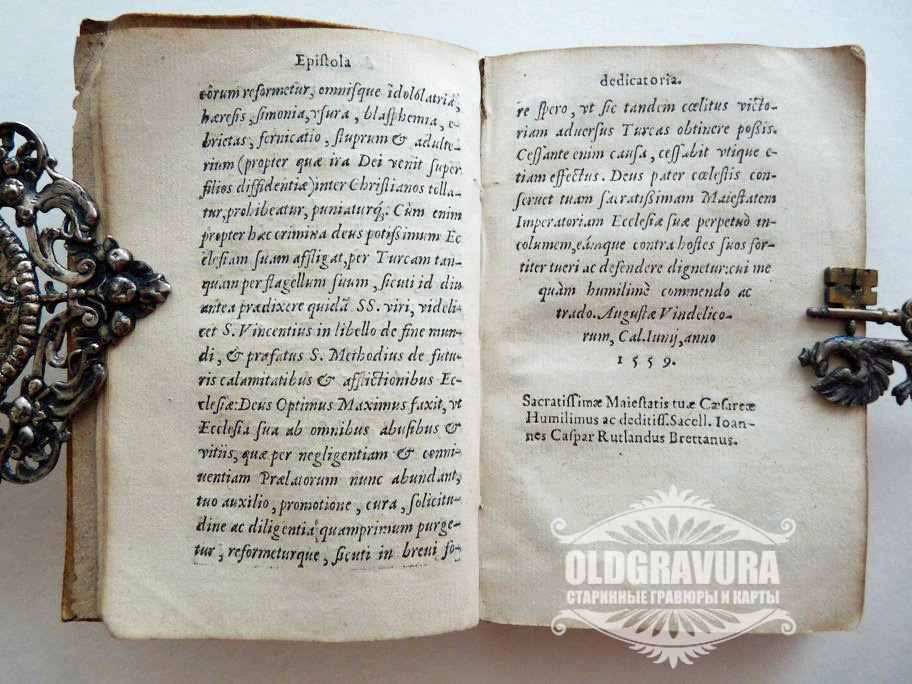 Epiſtola
eorum reformetur, omniſque idololatria,
hæreſis, ſimonia, vſura, blaſphemia, e-
brietas, fornicatio, ſtuprum & adulte-
rium (propter quæ ira Dei venit ſuper
filios diffidentiæ) inter Chriſtianos tolla-
tur, prohibeatur, puniaturq́;. Cùm enim
propter hæc crimina deus potiſsimum Ec
cleſiam ſuam affligat, per Turcam tan-
quam per flagellum ſuum, ſicuti id diu
antea prædixere quidã SS. viri, videli-
cet S. Vincentius in libello de fine mun-
di, & præfatus S. Methodius de futu-
ris calamitatibus & afflictionibus Ec-
cleſiæ: Deus Optimus Maximus faxit, vt
Eccleſia ſua ab omnibus abuſibus &
vitiis, quæ per negligentiam & conni-
uentiam Prælatorum nunc abundant,
tuo auxilio, promotione, cura, ſolicitu-
dine ac diligentia quamprimum purge-
tur, reformeturque, ſicuti in breui fo-
dedicatoria.
re ſpero, vt ſic tandem cœlitus victo-
riam aduerſus Turcas obtinere poßis.
Ceſſante enim cauſa, ceſſabit vtique e-
tiam effectus. Deus pater cœleſtis con-
ſeruet tuam ſacratißimam Maieſtatem
Imperatoriam Eccleſiæ ſuæ perpetuò in-
columem, eámque contra hoſtes ſuos for-
titer tueri ac defendere dignetur: cui me
quàm humilimè commendo ac
trado. Auguſtæ Vindelico-
rum, Cal. Iunij, anno
1559.
Sacratiſsimæ Maieſtatis tuæ Cæſareæ
Humilimus ac deditiſſ. Sacell. Ioan-
nes Caſpar Rutlandus Brettanus.
OLDGRAVURA
СТАРИННЫЕ ГРАВЮРЫ И КАРТЫ